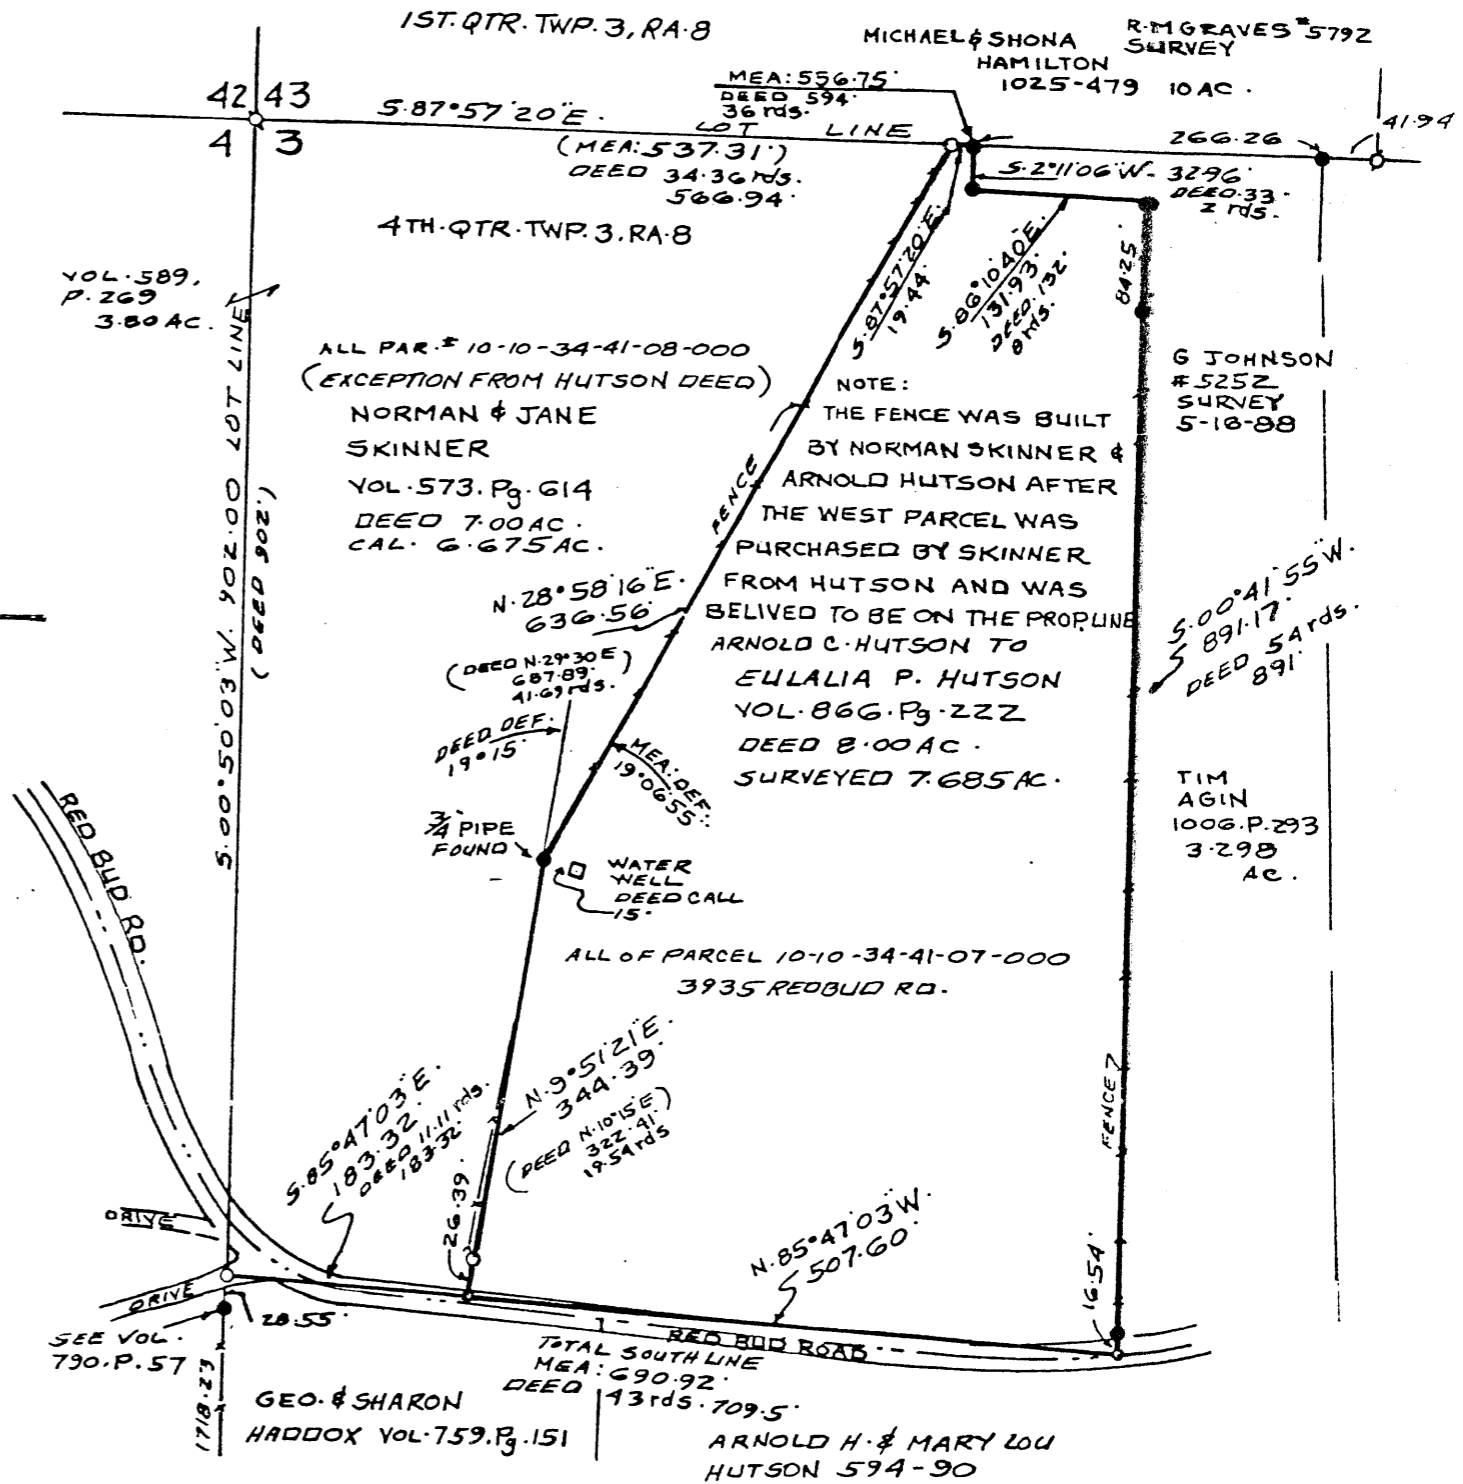 1ST. QTR. TWP. 3, RA. 8
MICHAEL & SHONA
HAMILTON
1025-479 10 AC.
R.M GRAVES #5792
SURVEY
MEA: 556.75'
DEED 594'
36 rds.
42 43
4 3
S.87°57'20"E.
LOT LINE
266.26
41.94
(MEA: 537.31')
DEED 34.36 rds.
566.94'
S.2°11'06"W - 32.96'
DEED. 33'
2 rds.
4TH. QTR. TWP. 3. RA. 8
VOL. 589,
P. 269
3.80 AC.
S.87°57'20"E.
19.44'
S.86°10'40"E.
131.93'
DEED. 132'
8 rds.
84.25'
ALL PAR. # 10-10-34-41-08-000
(EXCEPTION FROM HUTSON DEED)
NORMAN & JANE
SKINNER
VOL. 573. Pg. 614
DEED 7.00 AC.
CAL. 6.675 AC.
G JOHNSON
#5252
SURVEY
5-18-88
NOTE:
THE FENCE WAS BUILT
BY NORMAN SKINNER &
ARNOLD HUTSON AFTER
THE WEST PARCEL WAS
PURCHASED BY SKINNER
FROM HUTSON AND WAS
BELIVED TO BE ON THE PROP. LINE
FENCE
ARNOLD C. HUTSON TO
EULALIA P. HUTSON
VOL. 866. Pg. 222
DEED 8.00 AC.
SURVEYED 7.685 AC.
S.00°50'03"W. 902.00 LOT LINE
(DEED 902')
N.28°58'16"E.
636.56'
(DEED N.29°30'E)
687.89'
41.69 rds.
DEED DEF.
19°15'
MEA: DEF.
19°06'55"
S.00°41'55"W.
891.17'
DEED 54 rds.
891'
TIM
AGIN
1006. P. 293
3.298
AC.
RED BUD RD.
3/4" PIPE
FOUND
WATER
WELL
DEED CALL
15'
ALL OF PARCEL 10-10-34-41-07-000
3935 REDBUD RD.
S.85°47'03"E.
183.32'
DEED 11.11 rds.
183.32'
N.9°51'21"E.
344.39'
(DEED N.10°15'E)
322.41'
19.54 rds
26.39'
FENCE
N.85°47'03"W.
507.60'
16.54'
DRIVE
DRIVE
28.55'
SEE VOL.
790. P. 57
1718.23
RED BUD ROAD
TOTAL SOUTH LINE
MEA: 690.92'
DEED 43 rds. 709.5'
GEO. & SHARON
HADDOX VOL. 759. Pg. 151
ARNOLD H. & MARY LOU
HUTSON 594-90